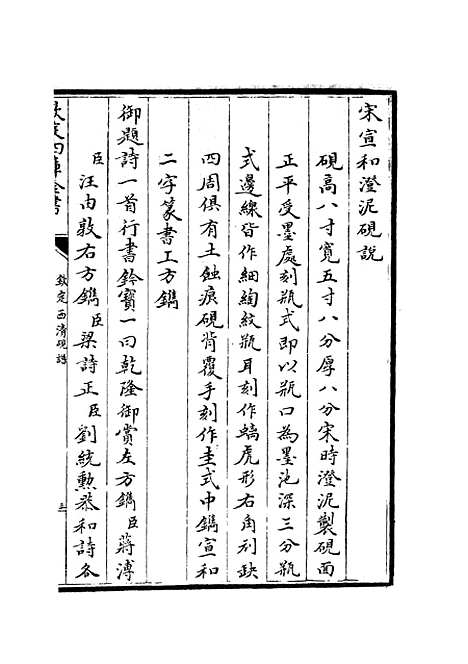 宋宣和澄泥硯說
硯高八寸寬五寸八分厚八分宋時澄泥製硯面
正平受墨處刻瓶式即以瓶口為墨池深三分瓶
式邊緣皆作細絢紋瓶耳刻作螭虎形右角刓缺
四周俱有土蝕痕硯背覆手刻作圭式中鐫宣和
二字篆書工方鐫
御題詩一首行書鈐寶一曰乾隆御賞左方鐫臣蔣溥
臣汪由敦右方鐫臣梁詩正臣劉統勲恭和詩各
欽定四庫全書
欽定西清硯譜
三